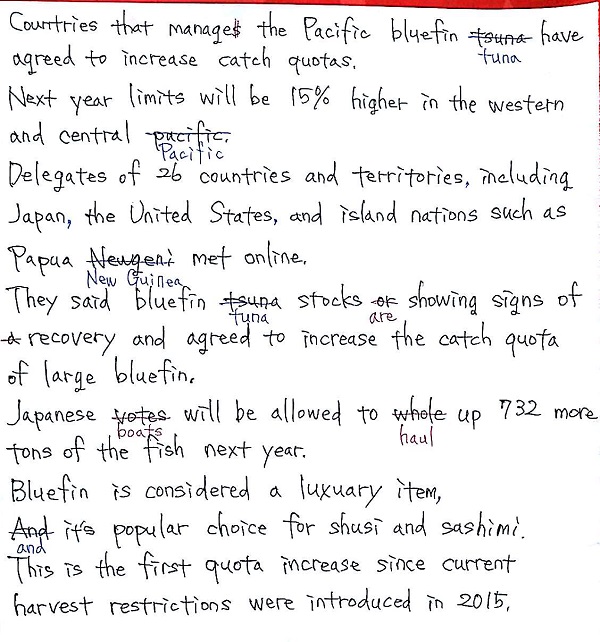 Countries that manages the Pacific bluefin tsuna have
tuna
agreed to increase catch quotas.
Next year limits will be 15% higher in the western
and central pacific.
Pacific
Delegates of 26 countries and territories, including
Japan, the United States, and island nations such as
Papua Newgeni met online.
New Guinea
They said bluefin tsuna stocks or showing signs of
tuna are
a recovery and agreed to increase the catch quota
of large bluefin.
Japanese votes will be allowed to whole up 732 more
boats haul
tons of the fish next year.
Bluefin is considered a luxuary item,
And it's popular choice for shusi and sashimi.
and
This is the first quota increase since current
harvest restrictions were introduced in 2015.